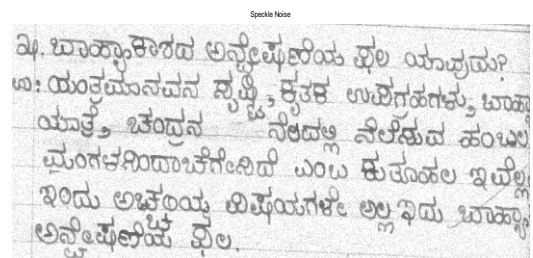 Speckle Noise
೩. ಬಾಹ್ಯಾಕಾಶದ ಅನ್ವೇಷಣೆಯ ಫಲ ಯಾವುದು?
ಉ: ಯಂತ್ರಮಾನವನ ಸೃಷ್ಟಿ, ಕೃತಕ ಉಪಗ್ರಹಗಳು, ಬಾಹ್ಯಾ
ಯಾತ್ರೆ, ಚಂದ್ರನ ನೆಲದಲ್ಲಿ ನೆಲೆಸುವ ಹಂಬಲ
ಮಂಗಳನಿಂದಾಚೆಗೇನಿದೆ ಎಂಬ ಕುತೂಹಲ ಇವೆಲ್ಲ
ಇಂದು ಅಚ್ಚರಿಯ ವಿಷಯಗಳೇ ಅಲ್ಲ ಇದು ಬಾಹ್ಯಾ
ಅನ್ವೇಷಣೆಯ ಫಲ.